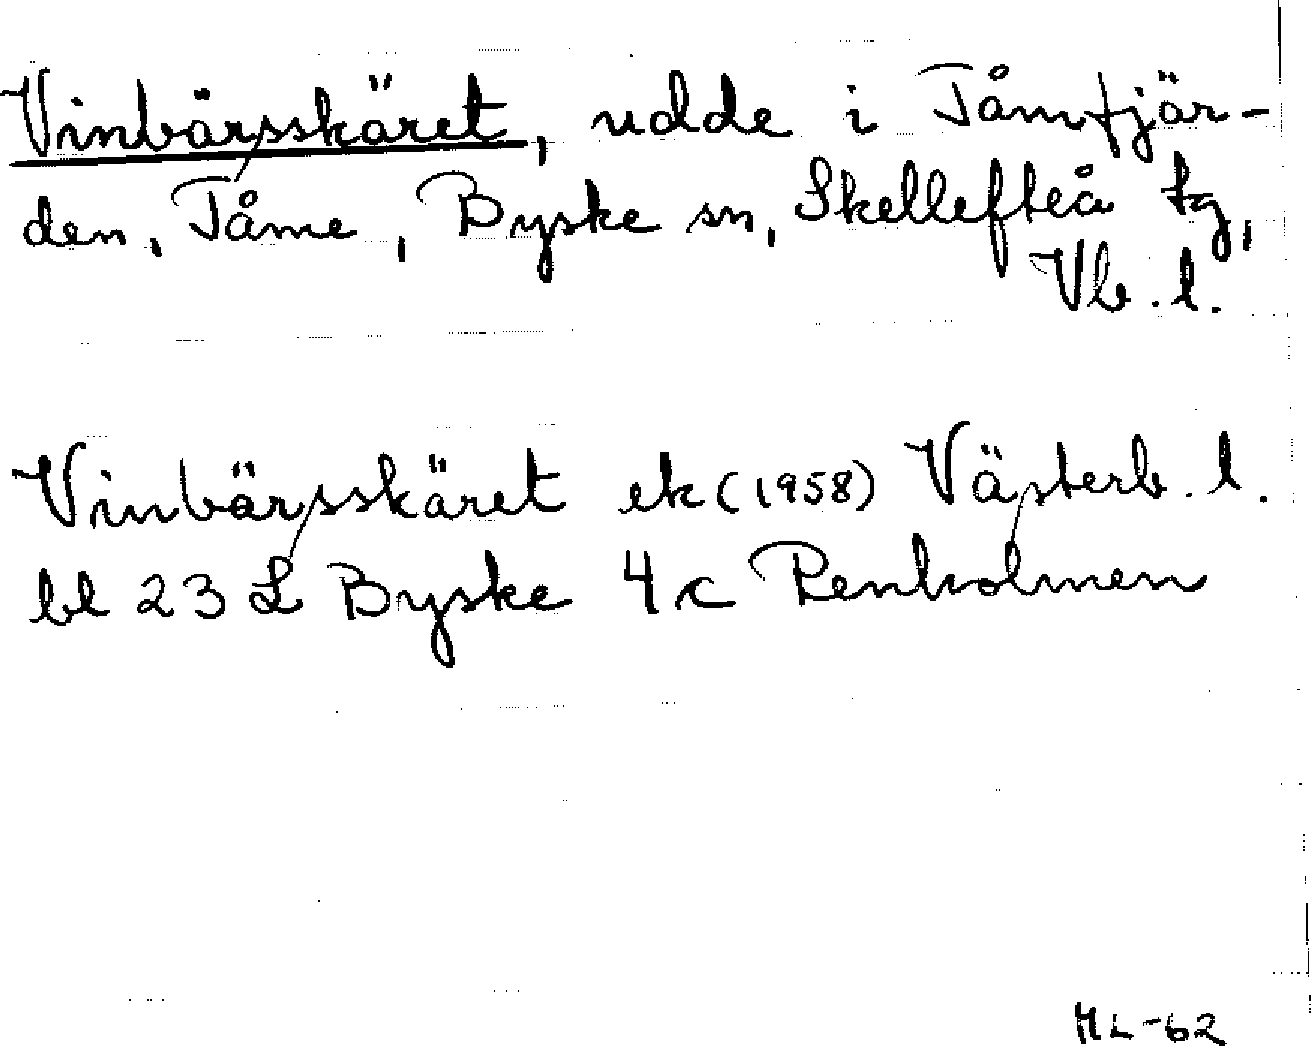 Vinbärsskäret, udde i Tåmfjär-
den, Tåme, Byske sn, Skellefteå tg,
Vb. l.
Vinbärsskäret ek (1958) Västerb. l.
bl 23 L Byske 4 c Renholmen
ML-62